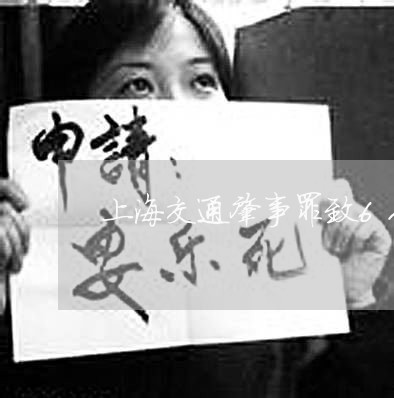 申請：
上海交通肇事罪致6
安乐死